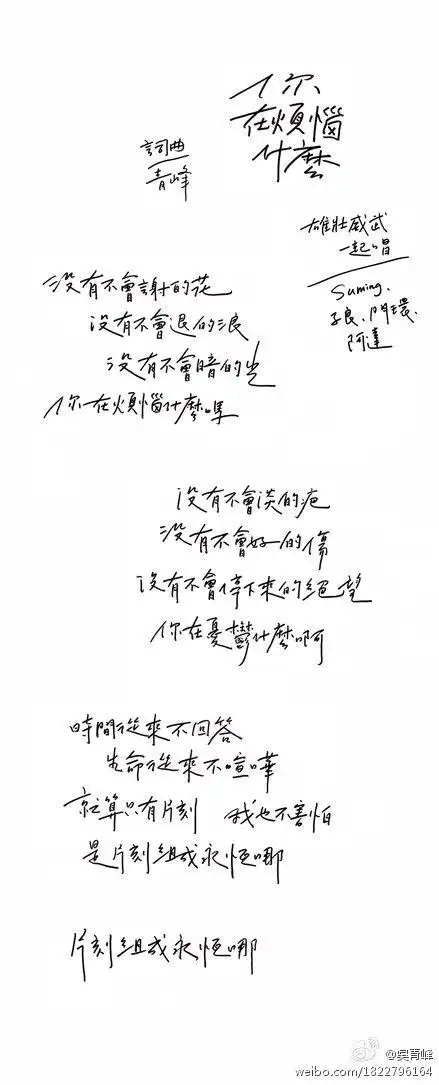 你
在煩惱
什麼
詞曲
青峰
雄壯威武
一起唱
Suming、
子良、門環、
阿達
沒有不會謝的花
沒有不會退的浪
沒有不會暗的光
你在煩惱什麼嗎
沒有不會淡的疤
沒有不會好的傷
沒有不會停下來的絕望
你在憂鬱什麼啊
時間從來不回答
生命從來不喧嘩
就算只有片刻 我也不害怕
是片刻組成永恆哪
片刻組成永恆哪
@吳青峰
weibo.com/1822796164